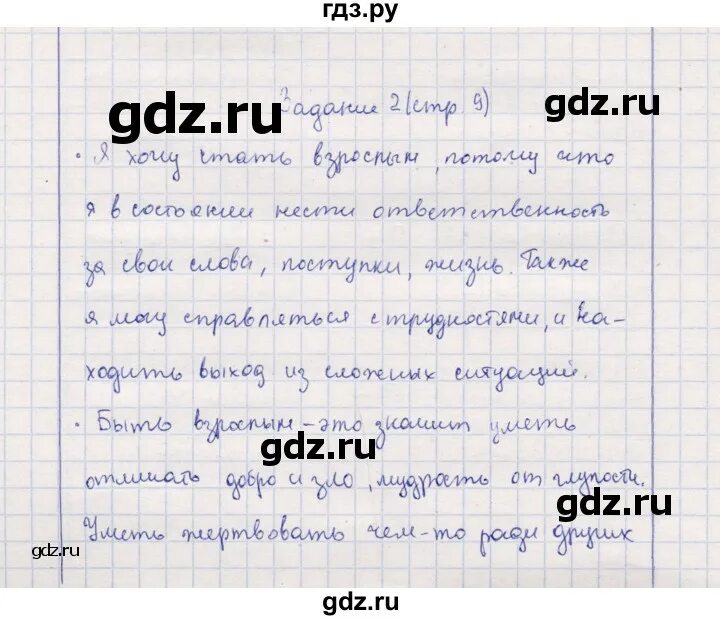 гдз.ру
gdz.ru
gdz.ru
Задание 2 (стр. 9)
· Я хочу стать взрослым, потому что
я в состоянии нести ответственность
за свои слова, поступки, жизнь. Также
я могу справляться с трудностями, и на-
ходить выход из сложных ситуаций.
· Быть взрослым – это значит уметь
gdz.ru
отличать добро и зло, мудрость от глупости.
gdz.ru
Уметь жертвовать чем-то ради других
gdz.ru
gdz.ru